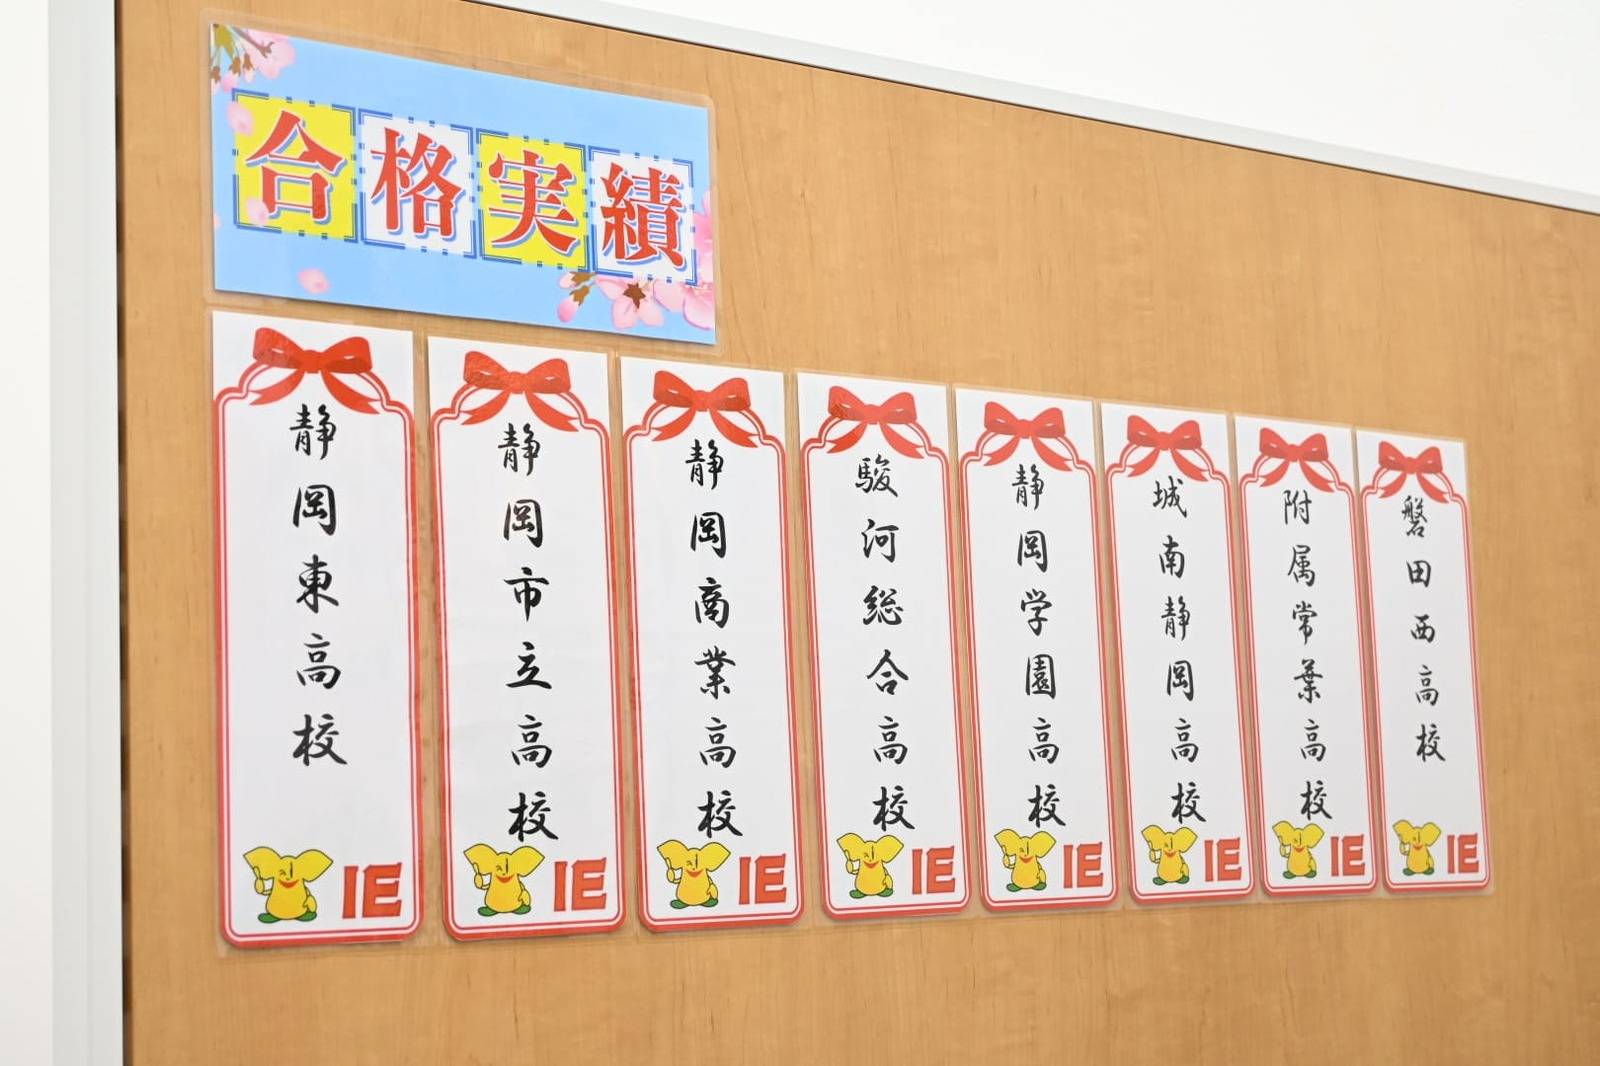 合格実績
静岡東高校
IE
静岡市立高校
IE
静岡商業高校
IE
駿河総合高校
IE
静岡学園高校
IE
城南静岡高校
IE
附属常葉高校
IE
磐田西高校
IE